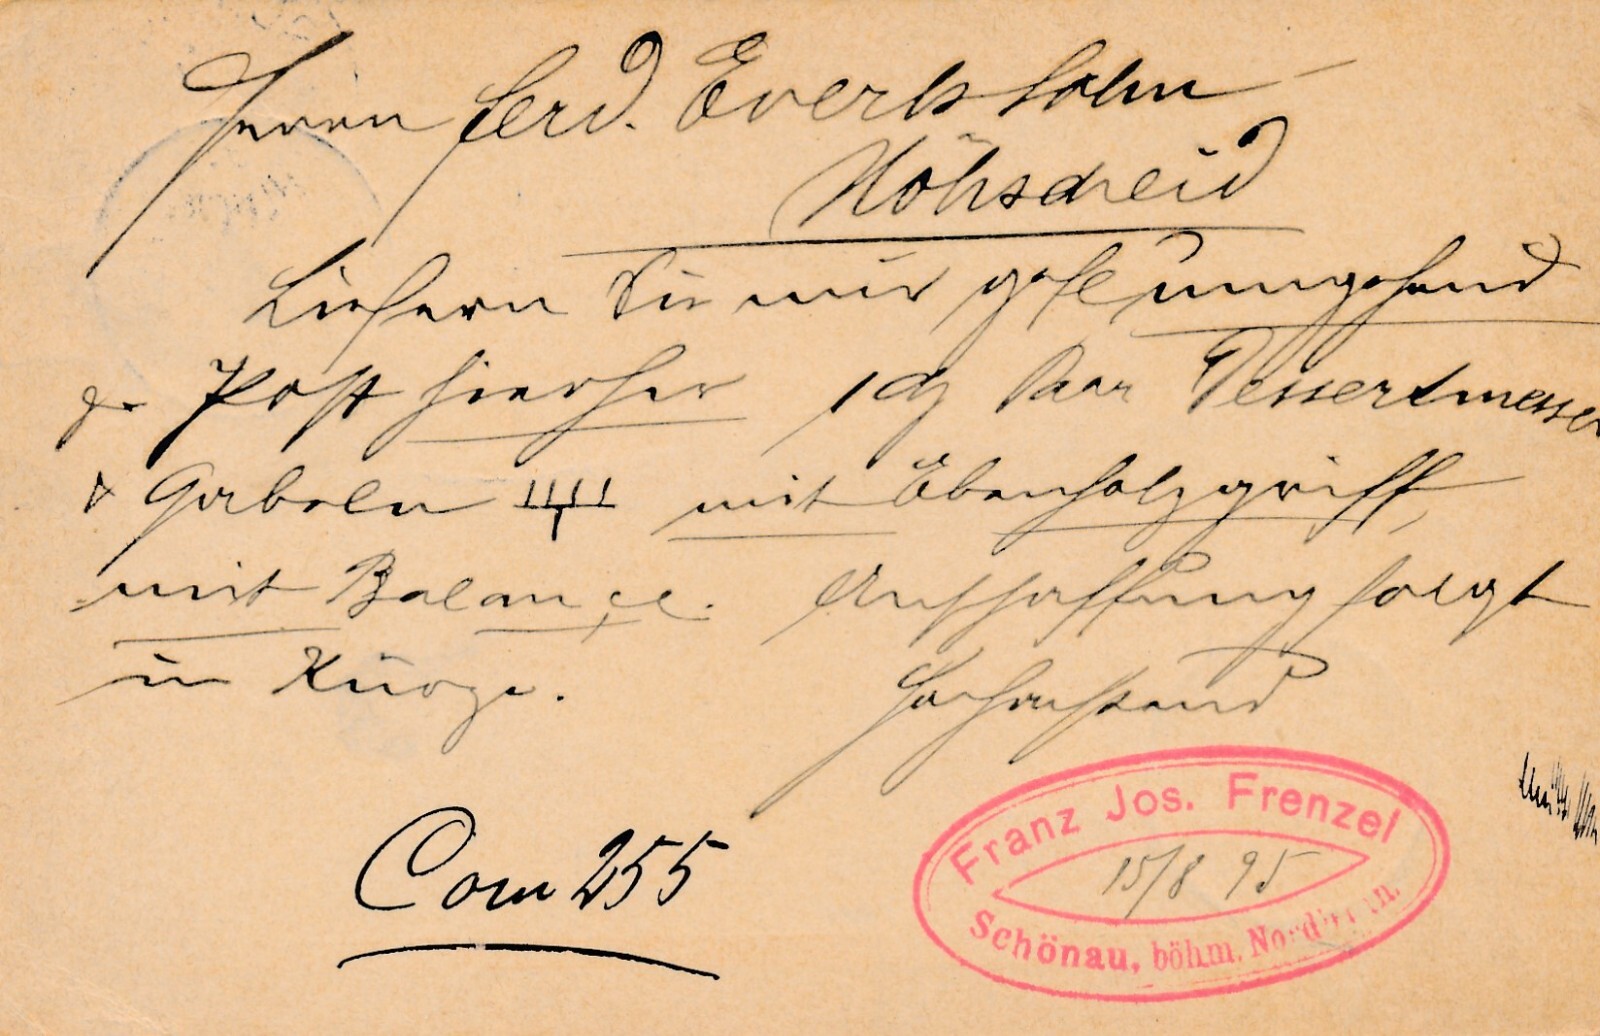 Herrn Ferd. Everts Sohn
Höhscheid
Liefern Sie mir gefl umgehend
pr Post hierher 1 Dz Paar Dessertmesser
& Gabeln mit Ebenholzgriff,
mit Balance. Anschaffung folgt
in Kürze. Hochachtend
Com 255
Franz Jos. Frenzel
15/8 95
Schönau, böhm. Nordbahn.